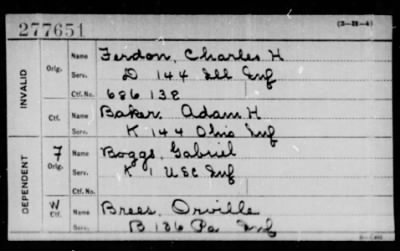 277651
(3-28-4)
INVALID
Orig.
Name Ferdon, Charles H
Serv. D 144 Ill Inf
Ctf. No. 686 138
Ctf.
Name Baker, Adam H
Serv. K 144 Ohio Inf
DEPENDENT
F
Orig.
Name Boggs, Gabriel
Serv. K 1 U S C Inf
Ctf. No.
W
Ctf.
Name Brees, Orville
Serv. B 136 Pa Inf